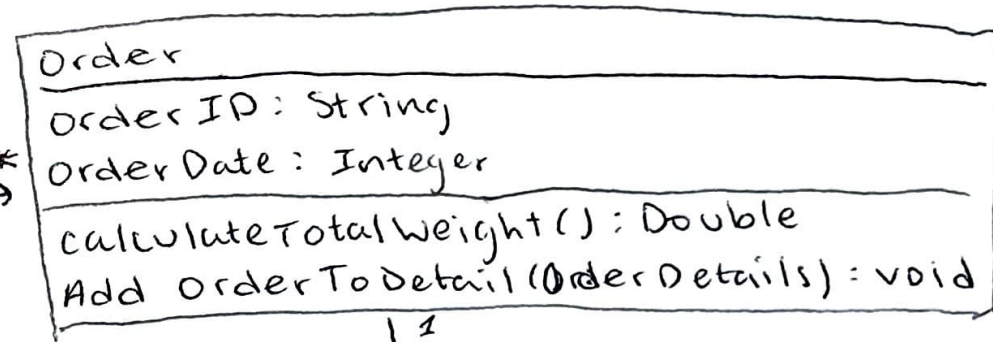 Order
OrderID: String
*
OrderDate: Integer
calculateTotalWeight(): Double
Add OrderToDetail(OrderDetails): void
1